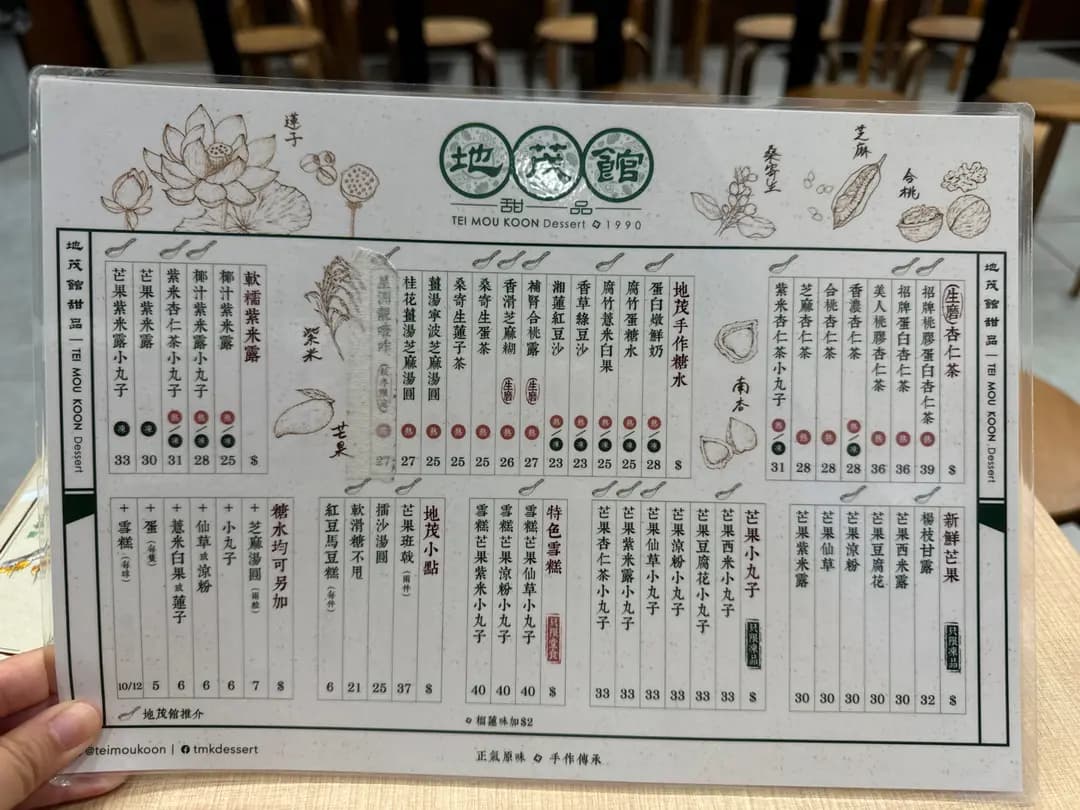 蓮子
地茂館
甜品
TEI MOU KOON Dessert 1990
桑寄生
芝麻
合桃
地茂館甜品 | TEI MOU KOON Dessert
生磨 杏仁茶 $
招牌桃膠蛋白杏仁茶 熱 39
招牌蛋白杏仁茶 熱 36
美人桃膠杏仁茶 熱 36
香濃杏仁茶 熱/凍 28
合桃杏仁茶 熱 28
芝麻杏仁茶 熱 28
紫米杏仁茶小丸子 熱/凍 31
南杏
地茂手作糖水 $
蛋白嫩鮮奶 熱/凍 28
腐竹雞蛋糖水 熱/凍 25
腐竹薏米白果 熱/凍 25
香草綠豆沙 熱/凍 23
湘蓮紅豆沙 熱/凍 23
補腎合桃露 生磨 熱 27
香滑芝麻糊 生磨 熱 26
桑寄生蛋茶 熱 25
桑寄生蓮子茶 熱 25
薑湯寧波芝麻湯圓 熱 25
桂花薑湯芝麻湯圓 熱 27
27
紫米
芒果
軟糯紫米露 $
椰汁紫米露 熱/凍 25
椰汁紫米露小丸子 熱/凍 28
紫米杏仁茶小丸子 熱/凍 31
芒果紫米露 凍 30
芒果紫米露小丸子 凍 33
地茂館甜品 | TEI MOU KOON Dessert
新鮮芒果 只限凍品 $
楊枝甘露 32
芒果西米露 30
芒果豆腐花 30
芒果涼粉 30
芒果仙草 30
芒果紫米露 30
芒果小丸子 只限凍品 $
芒果西米小丸子 33
芒果豆腐花小丸子 33
芒果涼粉小丸子 33
芒果仙草小丸子 33
芒果紫米露小丸子 33
芒果杏仁茶小丸子 33
特色雪糕 只限堂食 $
雪糕芒果仙草小丸子 40
雪糕芒果涼粉小丸子 40
雪糕芒果紫米小丸子 40
榴蓮味加$2
地茂小點 $
芒果班戟(兩件) 37
擂沙湯圓 25
軟滑糖不甩 21
紅豆馬豆糕(每件) 6
糖水均可另加 $
+芝麻湯圓(兩粒) 7
+小丸子 6
+仙草或涼粉 6
+薏米白果或蓮子 6
+蛋(每隻) 5
+雪糕(每球) 10/12
地茂館推介
@teimoukoon | tmkdessert
正氣原味 手作傳承